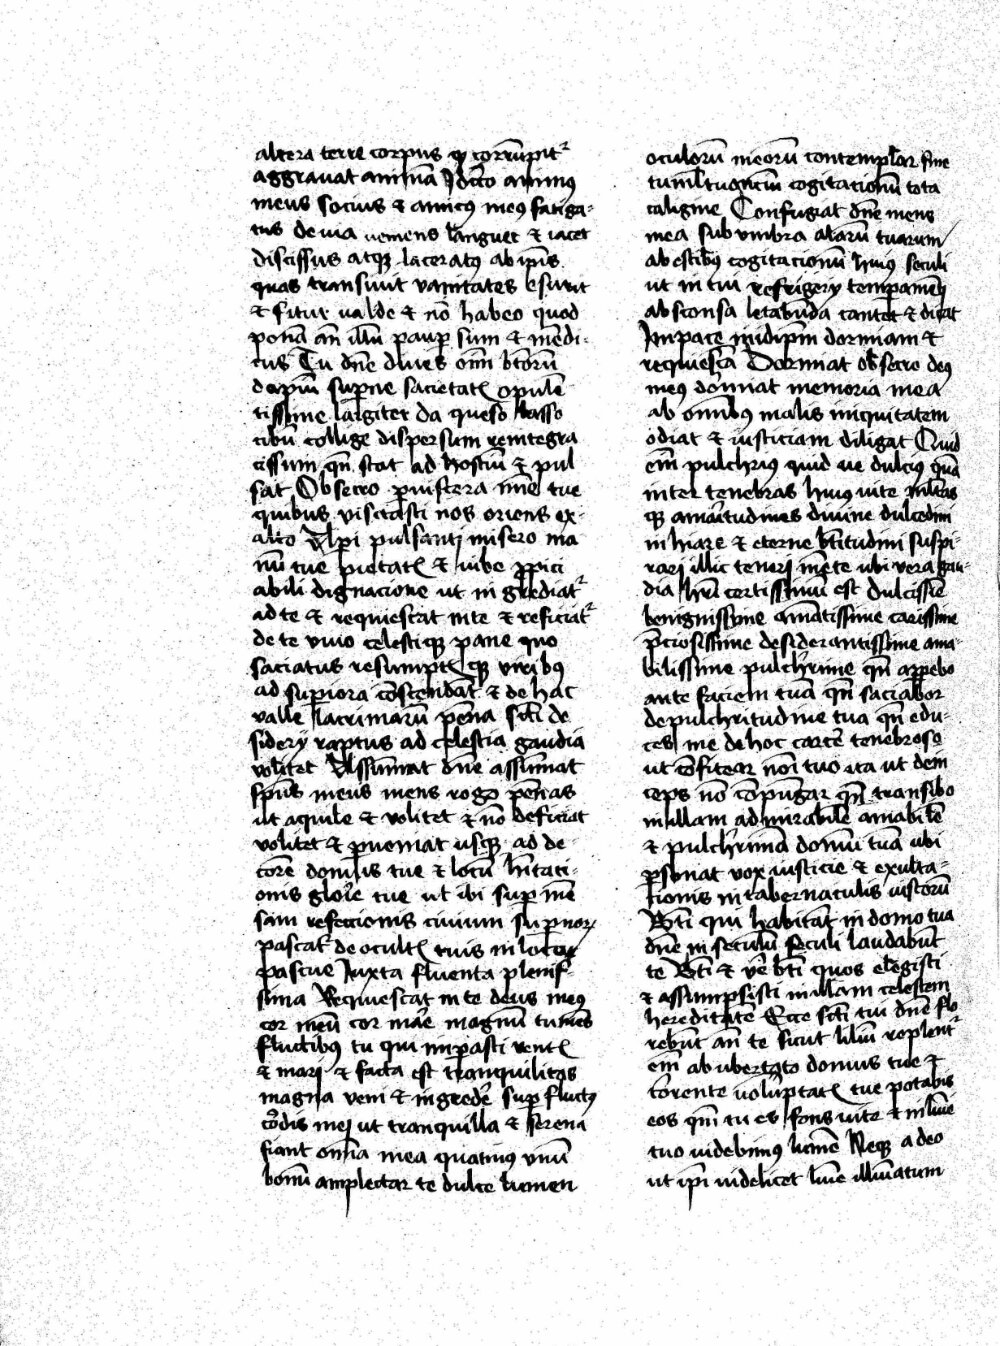 altera terre corpus qͥ corrūpitᷣ
aggravat animā Idcͨo animꝰ
meus socius & amicꝰ meꝰ fatiga-
tus de via vemens languet & iacet
discissus atqꝫ laceratꝰ ab ip̄is
quas transiuit vanitates Esurit
& sitit valde & nō habeo quod
ponā an̄ illū paup̄ sum & mēdi-
cus Tu dn̄e dives om̄i bōrū
dapiū sup̄ne sacietatꝭ opulē
tissime largiter da queso lasso
cibū collige dispersum reintegra
cissum qn̄ stat ad hostiū & pul
sat Obsecro p̄ viscera mīe tue
quibus visitasti nos oriens ex-
alto Ap̄i pulsanti misero ma
nū tue pietatꝭ & iube p̄pici
abili dignacione ut in grediatᷣ
ad te & requiescat in te & reficiatᷣ
de te vivo celestiqꝫ pane quo
saciatus resumptꝭqꝫ viribꝰ
ad sup̄iora cōscendāt & de hac
valle lacrimarū pēna scͥi de
siderij raptus ad celestia gaudia
volitet Assūmat dn̄e assūmat
sp̄us meus mens rogo pēnas
ut aquile & volitet & nō deficiat
volitet & p̄veniat usqꝫ ad de-
corē domus tue & locū hītati-
onis glorīe tue ut ibi sup̄ mē
sam refeccionis civium sup̄norꝝ
pascatᷣ de occultꝭ tuis in loco
pascue Iuxta fluenta plenis-
sima Requiescat in te deus meꝰ
cor meū cor mar̄e magnū tumēs
fluctibꝰ tu qui imp̄asti ventꝭ
& mari & facta est tranquilitas
magna veni & ingreder̄e sup̄ fluctꝰ
cōdis mei ut tranquilla & serena
fiant om̄ia mea quatinꝰ vnū
bonū amplectar te dulce lumen
oculorū meorū contempler sine
tumltuanciū cogitationū tota
caligine Confugiat dn̄e mens
mea sub vmbra alarū tuarum
ab estibꝰ cogitacionū huiꝰ seculi
ut in tui refrigerij temp̄amēto
absconsa letabūda cantet & dicat
In pace in idip̄m dormiam &
requiescā Dormiat obsecro deꝰ
meꝰ dormiat memoria mea
ab om̄ibus malis iniquitatem
odiat & iusticiam diligat Quid
em̄ pulchriꝰ quid ve dulciꝰ quā
inter tenebras huiꝰ vite mltas
qꝫ amaritudines divine dulcedini
inhiare & eterne btītudini suspi-
rari illic teneri mēte ubi vera gau-
dia hrī certissimū est Dulcissīe
benignissime amātissime carissime
p̄ciosissime desiderantissime ama-
bilissime pulchrrime qn̄ apparebo
ante faciem tuā qn̄ saciabor
de pulchritudine tua qn̄ edu-
ces me de hoc carcēe tenebroso
ut cōfitear noī tuo ita ut dein
ceps nō cōpungar qn̄ transibo
in illam admirabilē amabilē
& pulchrrimā domū tuā ubi
p̄sonat vox iusticie & exulta-
tionis in tabernaculis iustorū
Bt̄i qui habitāt in domo tua
dn̄e in seculū seculi laudabūt
te Bt̄i & ve̅ bt̄i quos elegisti
& assumpsisti in illam celestem
hereditatē Ecce scͥi tui dn̄e flo
rebūt an̄ te sicut liliū replentᷣ
em̄ ab ubertate domus tue &
torente volūptatꝭ tue potabis
eos qm̄ tu es fons vite & in lumīe
tuo videbimꝰ lumē Neqꝫ adeo
ut ip̄i videlicet lumē illūatum